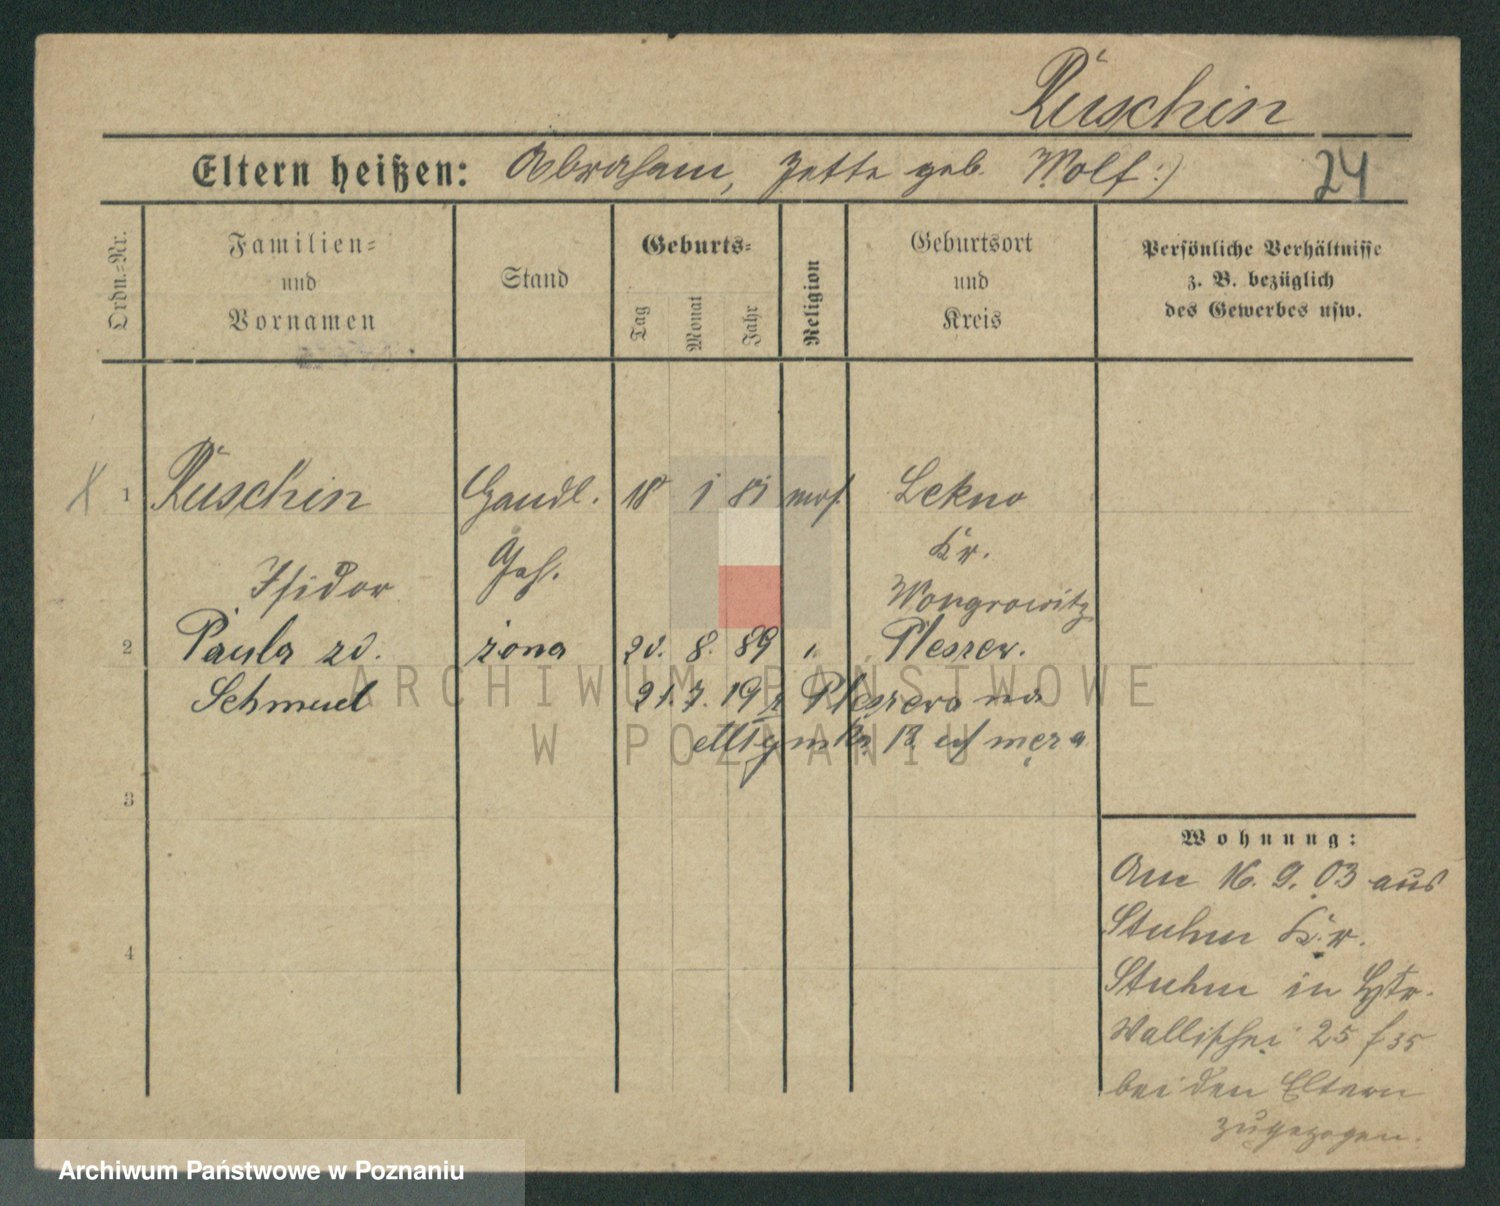 Rüschin
Eltern heißen: Abraham, Jette geb. Wolf :)
24
Ordn.-Nr.
Familien-
und
Vornamen
Stand
Geburts-
Tag
Monat
Jahr
Religion
Geburtsort
und
Kreis
Persönliche Verhältnisse
z. B. bezüglich
des Gewerbes usw.
1 Rüschin Handl. 18 1 mos. Lekno
Isidor Geh. Kr.
Wongrowitz
2 Paula zd. żona 20. 8. 89 " Pleszew.
Schmuel 21. 7. 19 Pleszewa na
12
3
4
Wohnung:
Am 16. 9. 03 aus
Stuhm Kr.
Stuhm in
Wallischei 25
bei den Eltern
zugezogen.
ARCHIWUM PAŃSTWOWE
W POZNANIU
Archiwum Państwowe w Poznaniu